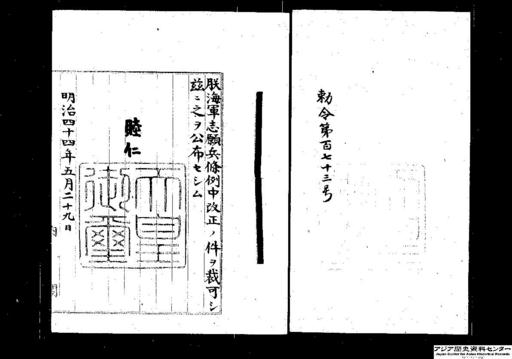 勅令第百七十三号
朕海軍志願兵條例中改正ノ件ヲ裁可シ
茲ニ之ヲ公布セシム
睦仁
天皇
御璽
明治四十四年五月二十九日
内 閣
アジア歴史資料センター
Japan Center for Asian Historical Records